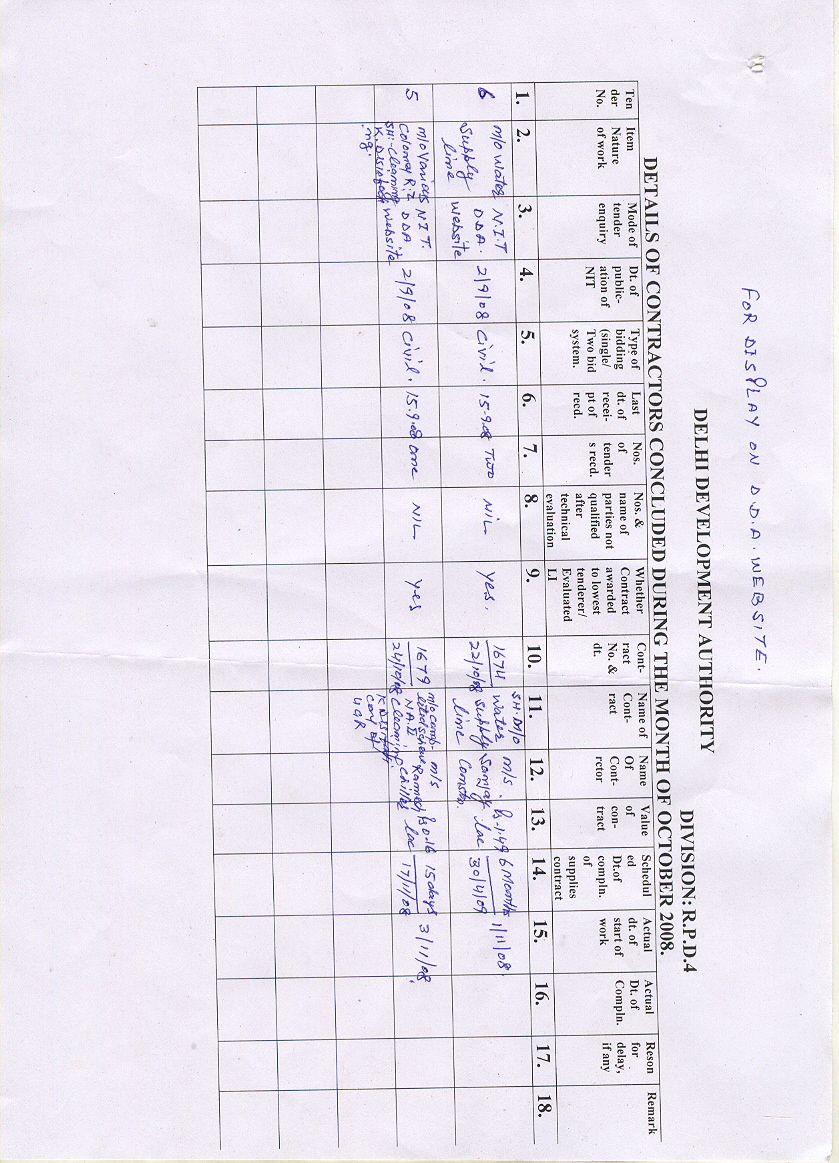 FOR DISPLAY ON D.D.A. WEBSITE.
DELHI DEVELOPMENT AUTHORITY
DIVISION: R.P.D.4
DETAILS OF CONTRACTORS CONCLUDED DURING THE MONTH OF OCTOBER 2008.
Ten
der
No.
Item
Nature
of work
Mode of
tender
enquiry
Dt. of
public-
ation of
NIT
Type of
bidding
(single/
Two bid
system.
Last
dt. of
recei-
pt of
recd.
Nos.
of
tender
s recd.
Nos. &
name of
parties not
qualified
after
technical
evaluation
Whether
Contract
awarded
to lowest
tenderer/
Evaluated
LI
Cont-
ract
No. &
dt.
Name of
Cont-
ract
Name
Of
Cont-
rctor
Value
of
con-
tract
Schedul
ed
Dt.of
compln.
of
supplies
contract
Actual
dt. of
start of
work
Actual
Dt. of
Compln.
Reson
for
delay,
if any
Remark
1. 2. 3. 4. 5. 6. 7. 8. 9. 10. 11. 12. 13. 14. 15. 16. 17. 18.
6
M/o Water
Supply
line
N.I.T
DDA.
Website
2/9/08
Civil.
15-9.08
Two
NIL
Yes.
1674
22/10/08
SH: M/o
Water
Supply
line
M/s.
Sanjay
Constn.
Rs.1.49
lac
6 Months
30/4/09
1/11/08.
5
M/o Various
Colony R.Z
SH:- Cleaning
N.I.T.
DDA.
Website
2/9/08
Civil.
15.9.08
One
NIL
Yes
1679
24/10/08
M/o comp.
N.A.II
Cleaning
UGR
M/s
Ramesh
Rs 0.16
lac
15 days
17/11/08
3/11/08.